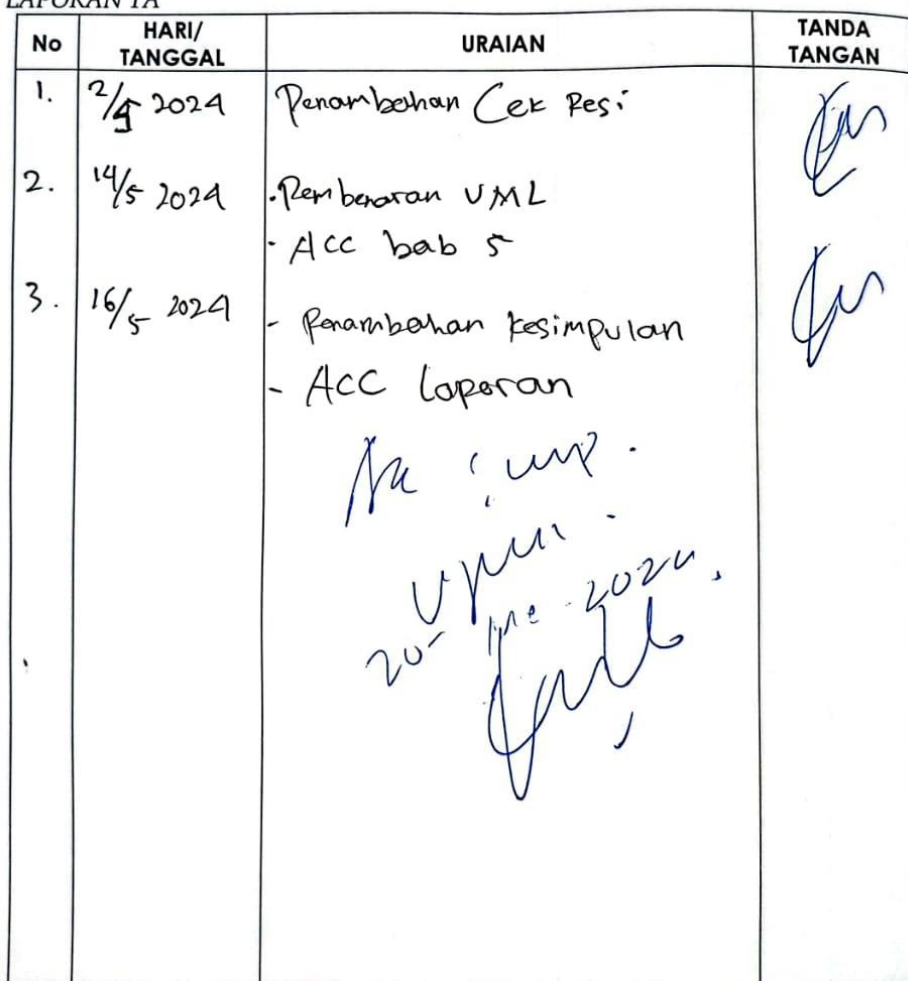 LAPORAN TA
No HARI/ TANGGAL URAIAN TANDA TANGAN
1. 2/5 2024 Penambahan Cek Resi
2. 14/5 2024 . Pembenaran UML
- ACC bab 5
3. 16/5 2024
- Penambahan kesimpulan
- ACC laporan
20 2024